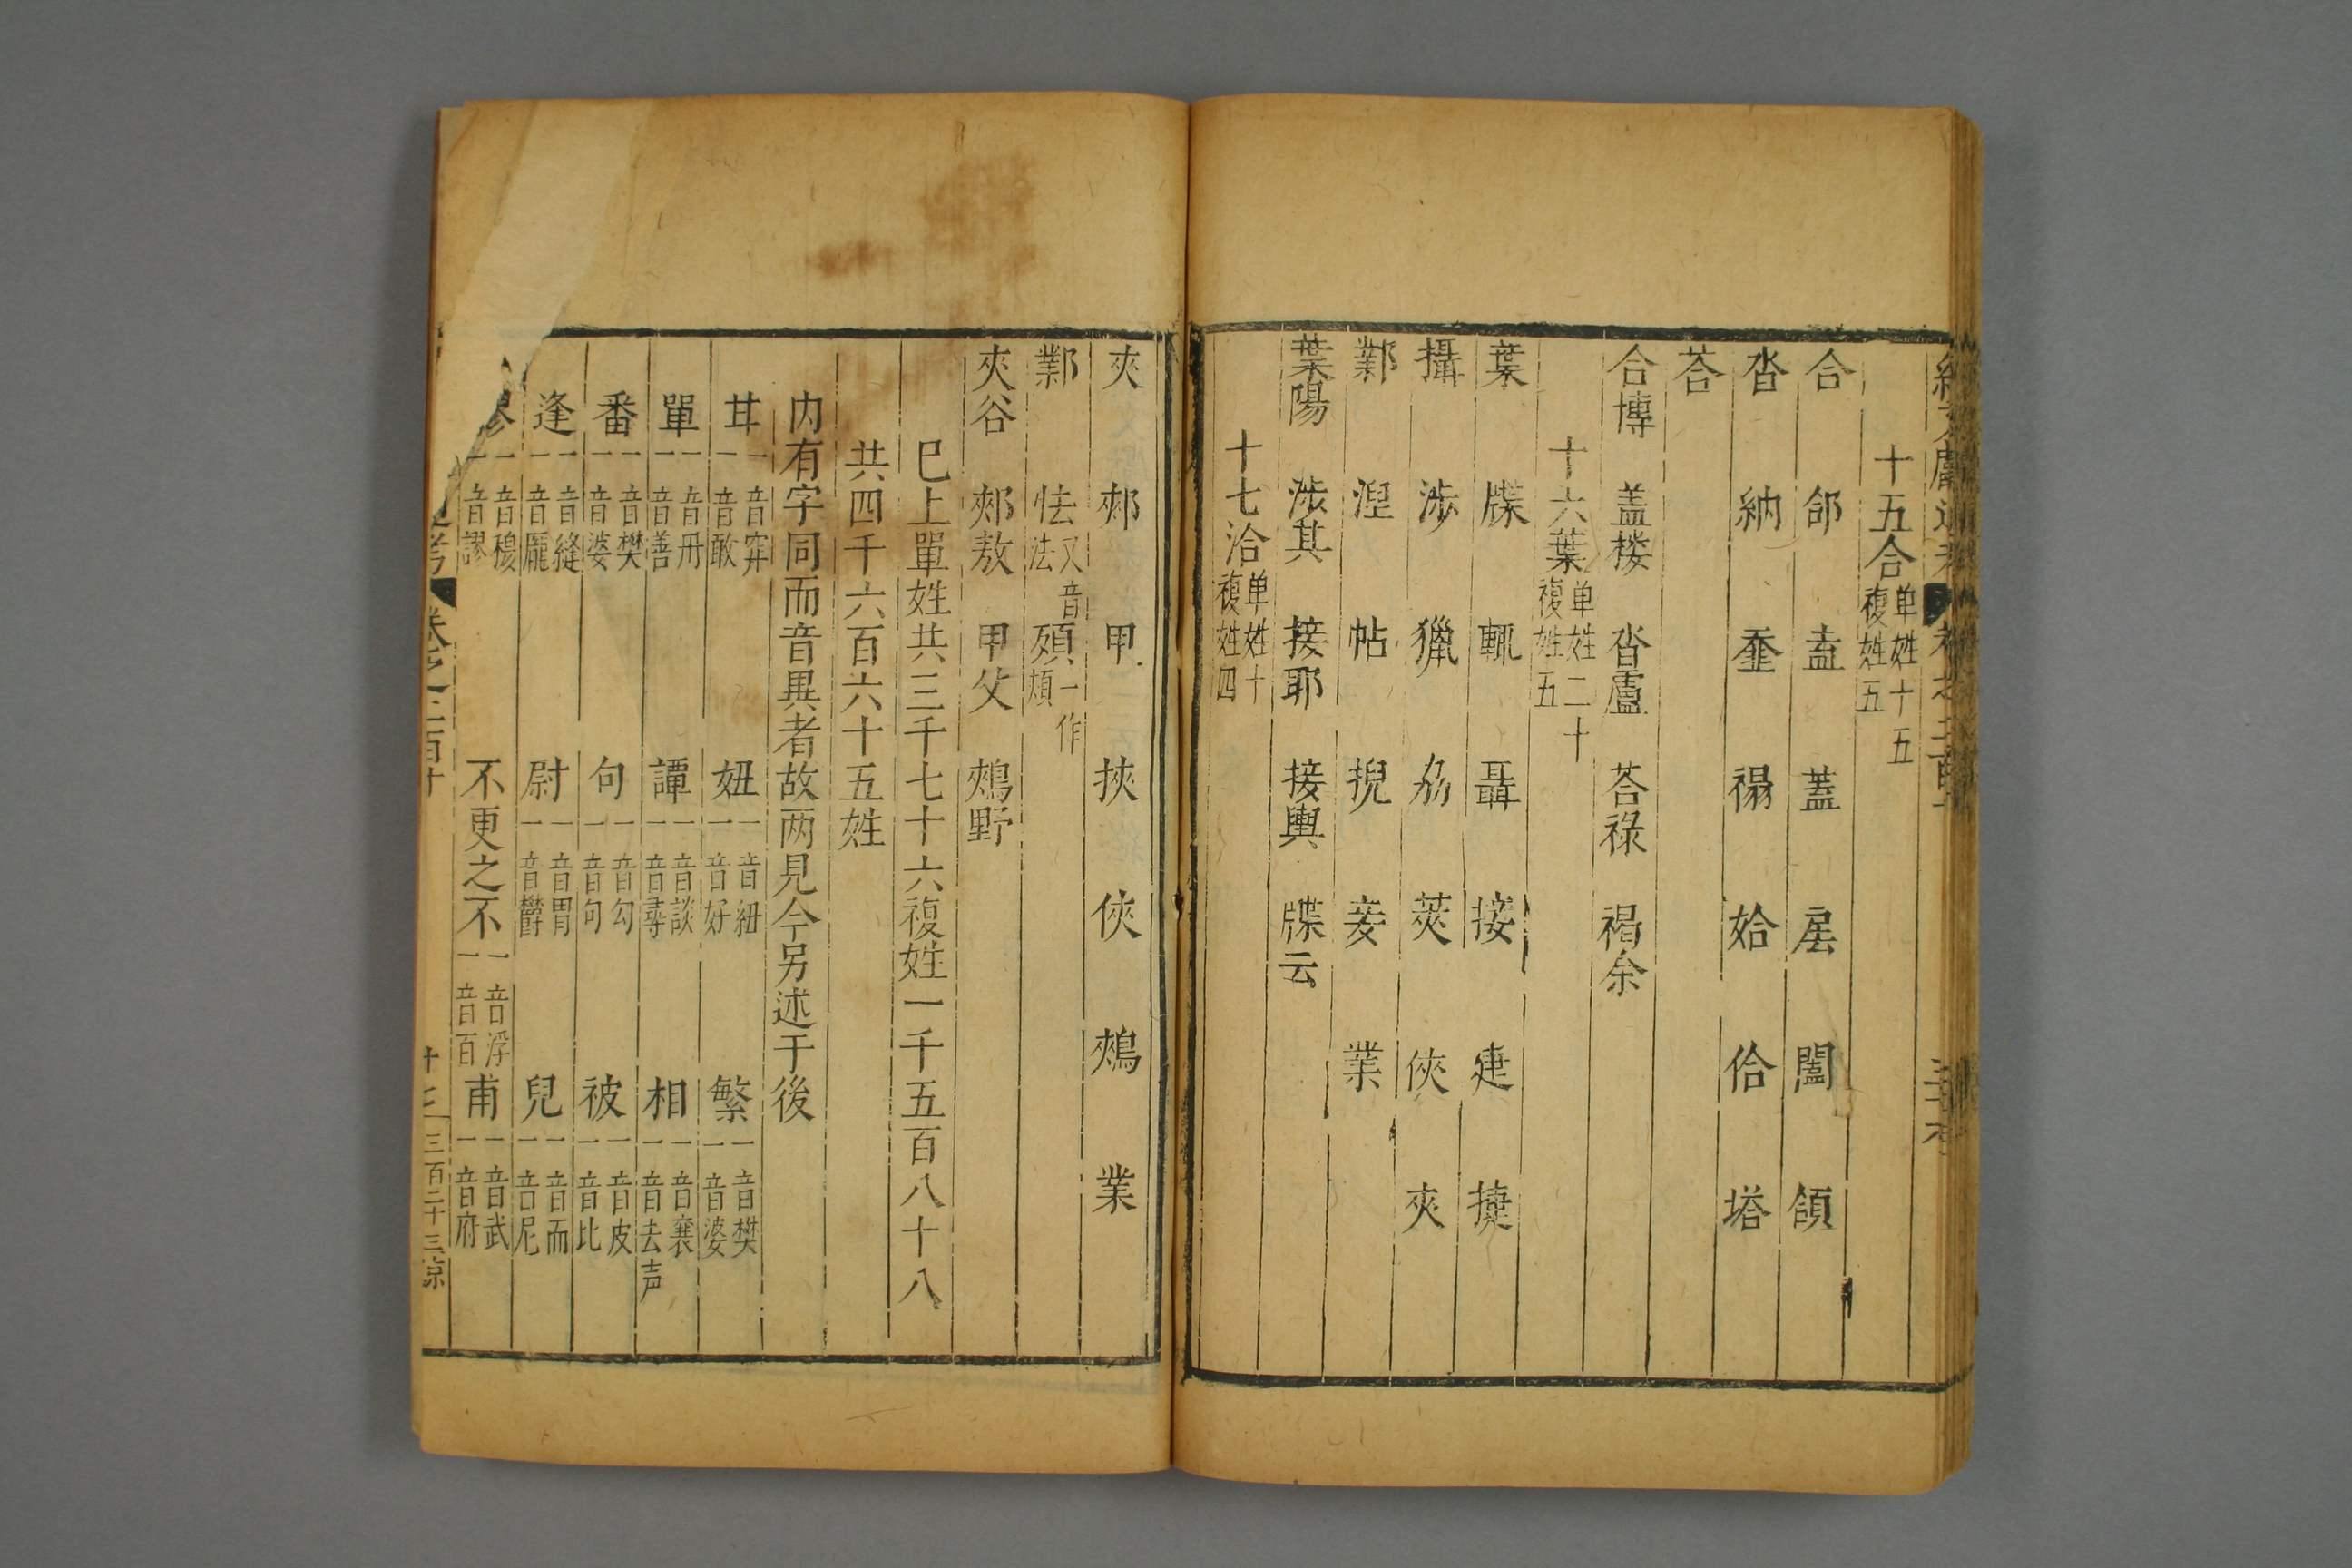 十五合單姓十五複姓五
合 郃 盍 蓋 㕎 闔 頜
沓 納 㙮 褟 姶 佮 塔
荅
合博 盖楼 沓盧 荅祿 褐余
十六葉单姓二十複姓五
葉 牒 輒 聶 接 疌 捷
攝 涉 獵 劦 莢 俠 夾
鄴 湼 帖 掜 妾 業
葉陽 涉其 接耶 接輿 牒云
十七洽单姓十複姓四
夾 郟 甲 挾 俠 鵊 業
鄴 怯又音法 頞一作頬
夾谷 郟敖 甲父 鵊野
巳上單姓共三千七十六複姓一千五百八十八
共四千六百六十五姓
内有字同而音異者故两見今另述于後
甘一音弇一音敢 妞一音紐一音好 繁一音樊一音婆
單一音冊一音善 譚一音談一音尋 相一音襄一音去声
番一音樊一音婆 句一音勾一音句 被一音皮一音比
逢一音縫一音龎 尉一音胃一音欝 兒一音而一音尼
一音穆一音謬 不更之不一音浮一音百 甫一音武一音府
三百二十三